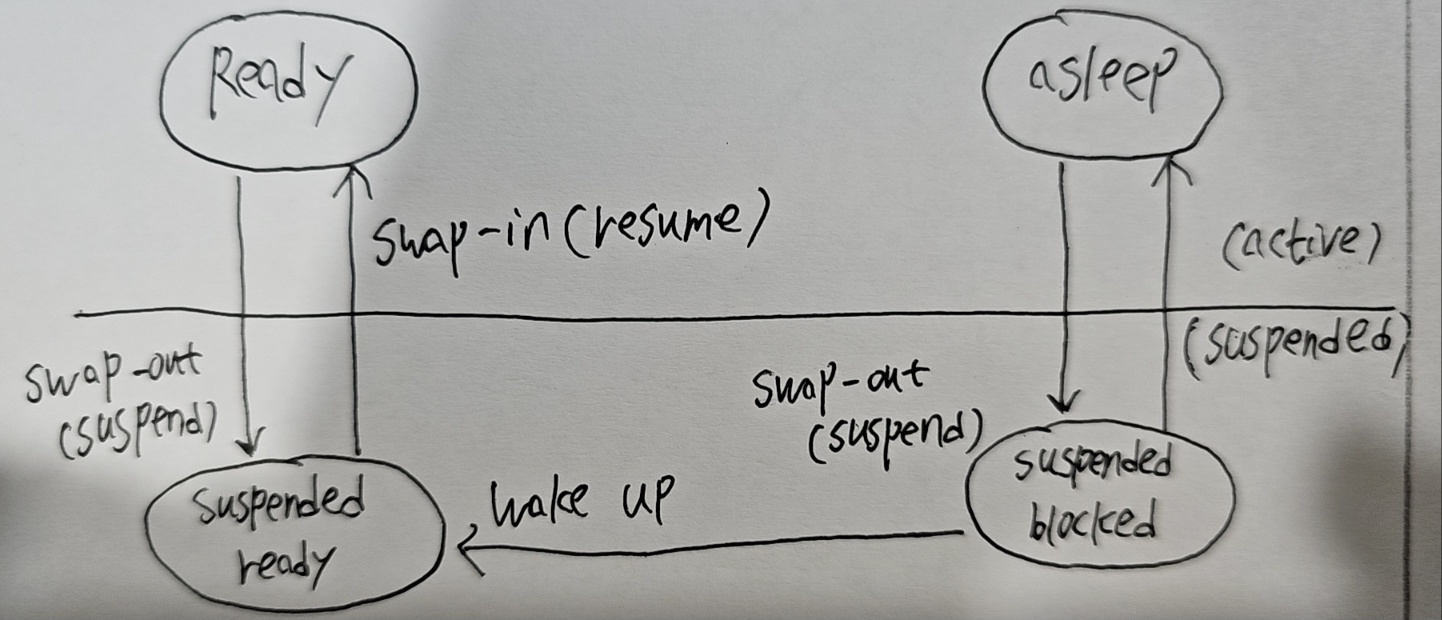 Ready
asleep
swap-in (resume)
(active)
(suspended)
swap-out
(suspend)
swap-out
(suspend)
suspended
ready
wake up
suspended
blocked